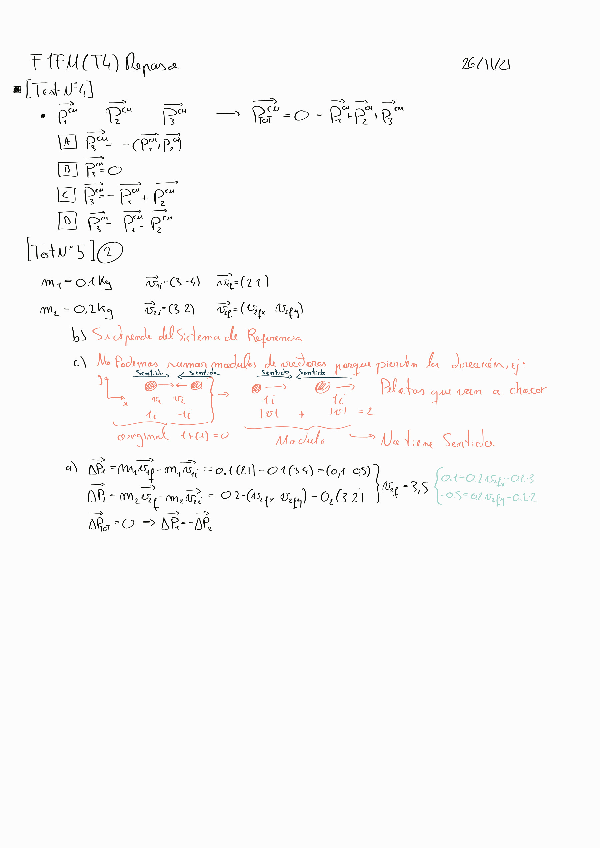 FTFM(T4) Repaso 26/11/21
[Test Nº4]
• P₁^CM P₂^CM P₃^CM → P_TOT^CM = 0 = P₁^CM + P₂^CM + P₃^CM
A P₃^CM = -(P₁^CM + P₂^CM)
B P₁^CM = 0
C P₃^CM = - P₁^CM + P₂^CM
D P₃^CM = P₁^CM - P₂^CM
[Test Nº5] 2
m₁ = 0.1 Kg v₁ᵢ = (3 -4) v₁f = (2 1)
m₂ = 0,2 Kg v₂ᵢ = (3 2) v₂f = (v₂fx v₂fy)
b) Si depende del Sistema de Referencia
c) No Podemos sumar modulos de vectores porque pierden la dirección, ej.
Sentido Sentido Sentido Sentido
y
x
→ Pelotas que van a chocar
1i -1i 1i 1i
|v| + |v| = 2
original 1+(-1) = 0 Modulo → No tiene Sentido
a) ΔP₁ = m₁v₁f - m₁v₁ᵢ = 0.1(2 1) - 0.1(3 -4) = (-0,1 0.5)
ΔP₂ = m₂v₂f - m₂v₂ᵢ = 0.2 (v₂fx v₂fy) - 0,2(3 2)
v₂f = 3,5
0.1 = 0.2v₂fx - 0.2·3
-0.5 = 0.2v₂fy - 0.2·2
ΔP_TOT = 0 → ΔP₁ = -ΔP₂